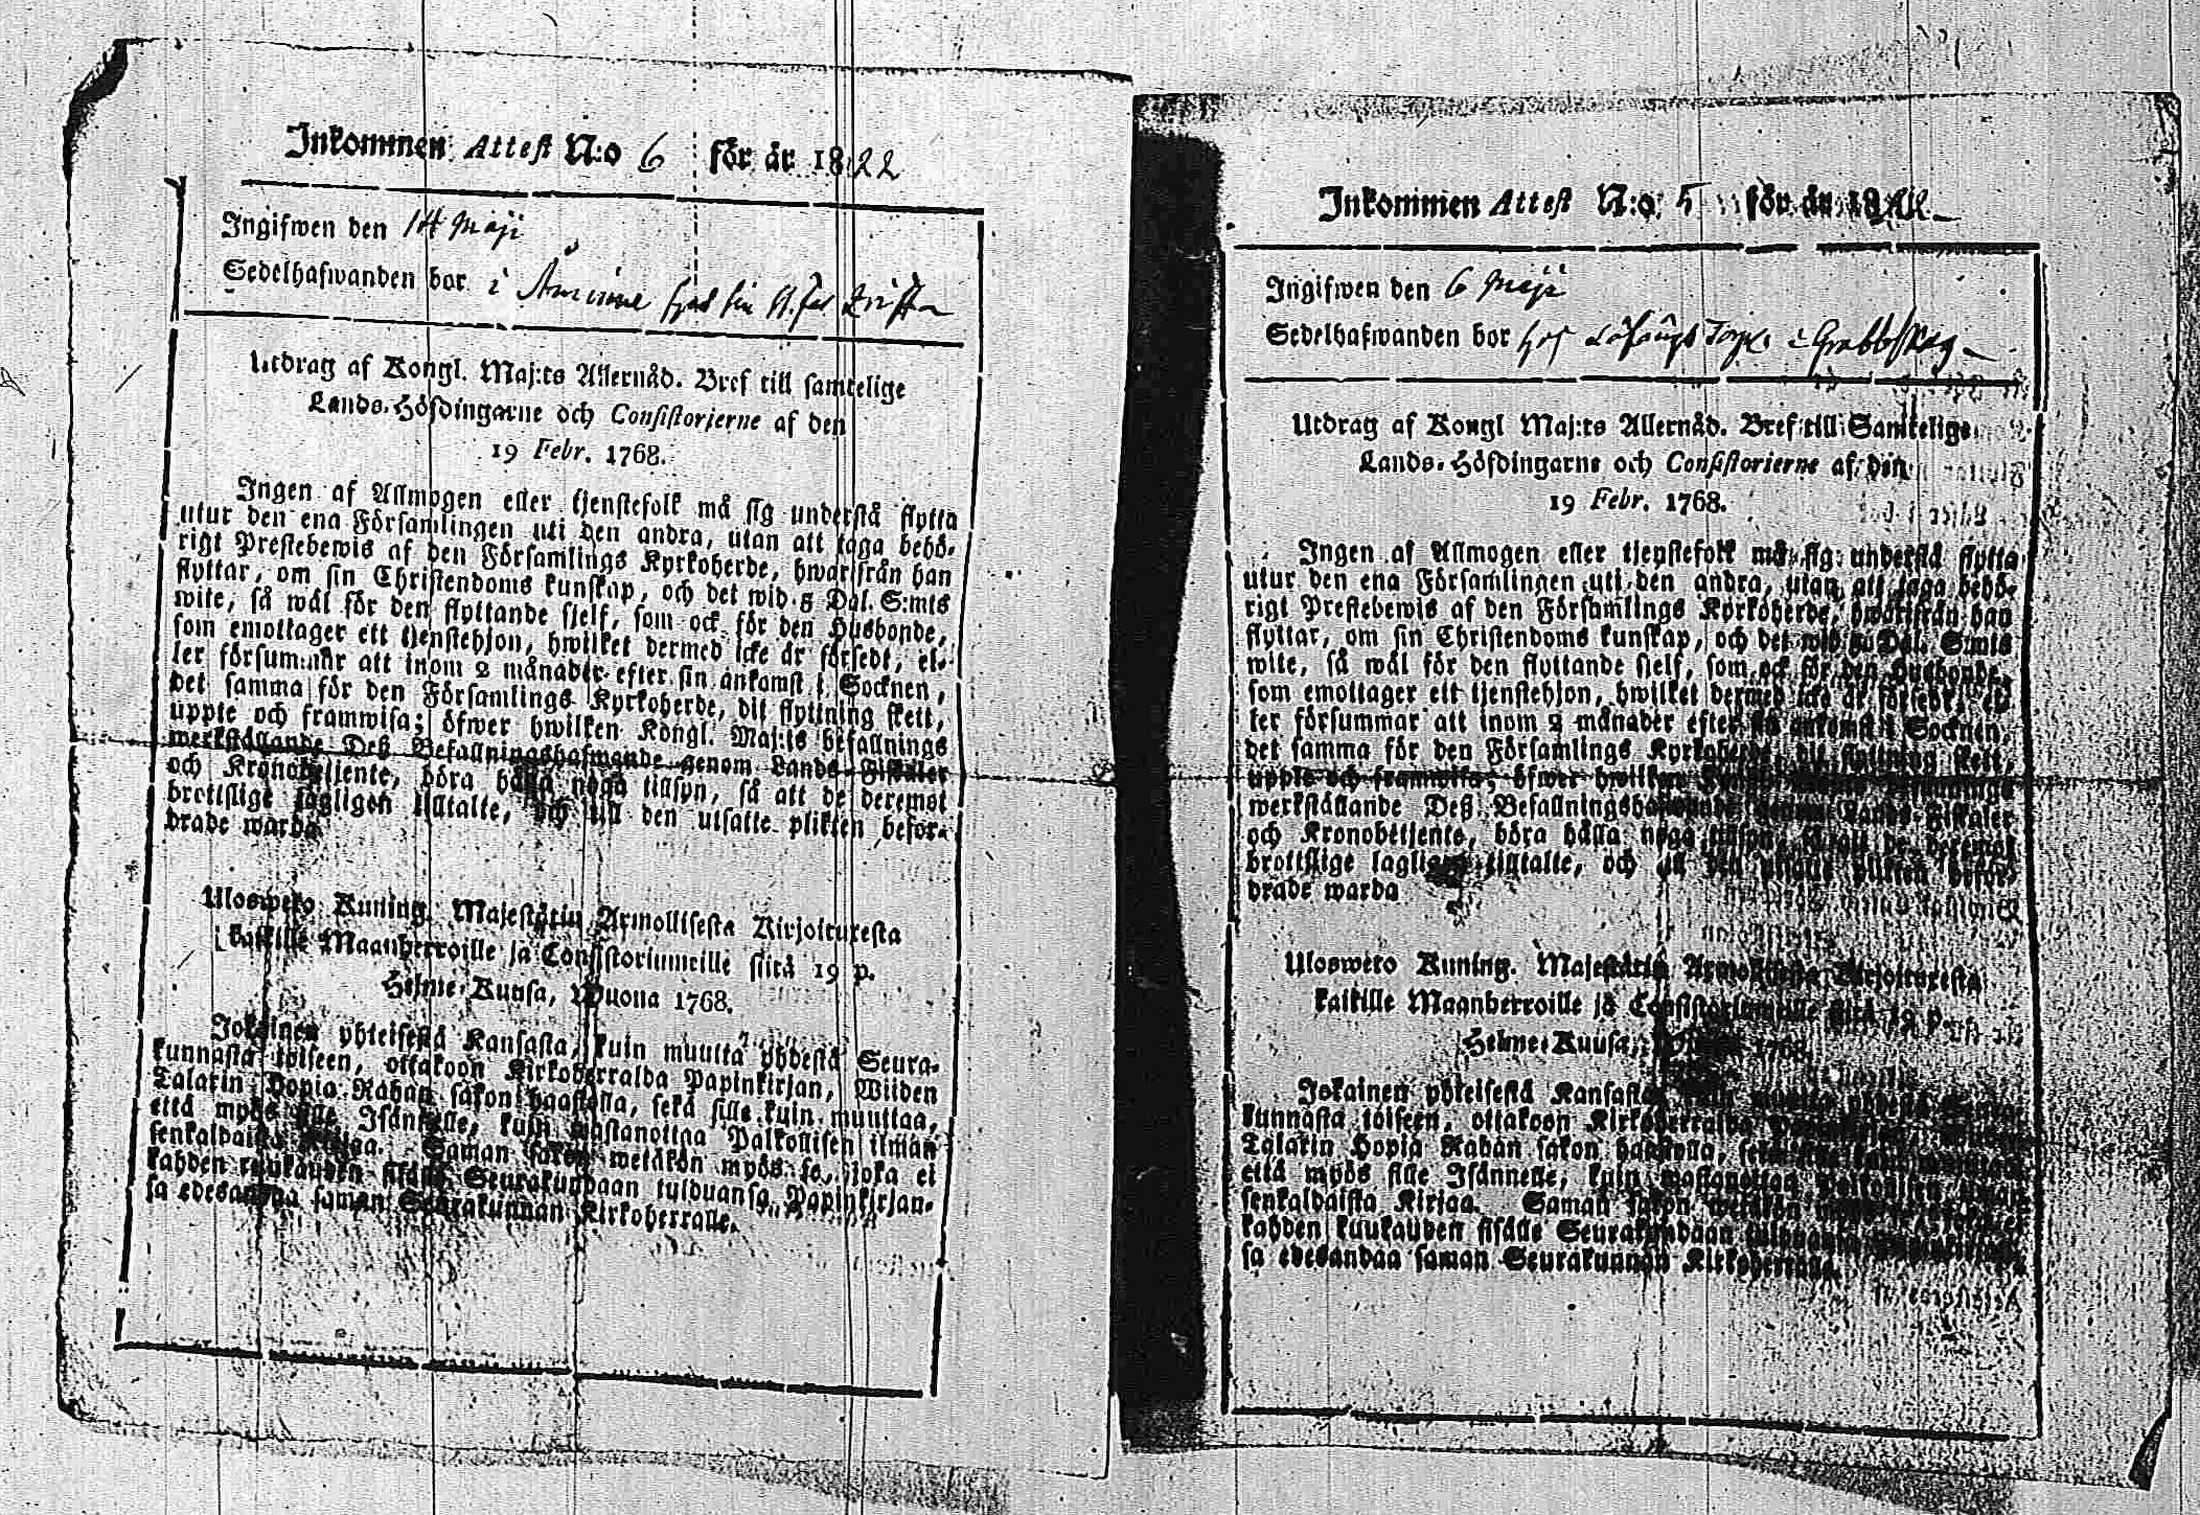 Inkommen Attest N:o 6 för år 1822
Ingifwen den 14 Maji
Sedelhafwanden bor i
Utdrag af Kongl. Maj:ts Allernåd. Bref till samtelige
Lands-Höfdingarne och Consistorierne af den
19 Febr. 1768.
Ingen af Allmogen eller tjenstefolk må sig understå flytta
utur den ena Församlingen uti den andra, utan att taga behö-
rigt Prestebewis af den Församlings Kyrkoherde, hwarifrån han
flyttar, om sin Christendoms kunskap, och det wid 5 Dal. S:mts
wite, så wäl för den flyttande sjelf, som ock för den Husbonde,
som emottager ett tjenstehjon, hwilket dermed icke är försedt, el-
ler försummar att inom 2 månader efter sin ankomst i Socknen,
det samma för den Församlings Kyrkoherde, dit flyttning skett,
uppte och framwisa; öfwer hwilken Kongl. Maj:ts befallnings
werkställande Deß Befallningshafwande genom Lands-Fiskaler
och Kronobetjente, böra hålla noga tillsyn, så att de deremot
brottslige lagligen tilltalte, och till den utsatte plikten beford-
drade warda
Ulosweto Kuning. Majestätin Armollisesta Kirjoituxesta
kaikille Maanherroille ja Consistoriumeille siitä 19 p.
Helme-Kuusa, Wuona 1768.
Jokainen yhteisestä Kansasta, kuin muutta yhdestä Seura-
kunnasta toiseen, ottakoon Kirkoherralda Papinkirjan, Wiiden
Talarin Hopia Rahan sakon haastolla, sekä sille kuin muuttaa,
että myös sille Isännelle, kuin wastanottaa Palkollisen ilman
senkaldaista Kirjaa. Saman sakon wetäkön myös se, joka ei
kahden kuukauden sisälle Seurakundaan tulduansa, Papinkirjan-
sa edesandaa saman Seurakunnan Kirkoherralle.
Inkommen Attest N:o 5 för år 1822
Ingifwen den 6 Maji
Sedelhafwanden bor hos
Utdrag af Kongl Maj:ts Allernåd. Bref till Samtelige
Lands-Höfdingarne och Consistorierne af den
19 Febr. 1768.
Ingen af Allmogen eller tjenstefolk må sig understå flytta
utur den ena Församlingen uti den andra, utan att taga behö-
rigt Prestebewis af den Församlings Kyrkoherde, hwarifrån han
flyttar, om sin Christendoms kunskap, och det wid 5 Dal. S:mts
wite, så wäl för den flyttande sjelf, som ock för den Husbonde,
som emottager ett tjenstehjon, hwilket dermed icke är försedt, el-
ler försummar att inom 2 månader efter sin ankomst i Socknen,
det samma för den Församlings Kyrkoherde, dit flyttning skett,
uppte och framwisa; öfwer hwilken
werkställande Deß Befallningshafwande genom Lands-Fiskaler
och Kronobetjente, böra hålla noga tillsyn, så att de deremot
brottslige lagligen tilltalte, och till den utsatte plikten befor-
drade warda
Ulosweto Kuning. Majestätin Armollisesta Kirjoituxesta
kaikille Maanherroille ja Consistoriumeille siitä 19 p.
Helme-Kuusa, 1768.
Jokainen yhteisestä Kansasta, kuin muutta yhdestä Seura-
kunnasta toiseen, ottakoon Kirkoherralda
Talarin Hopia Rahan sakon haastolla,
että myös sille Isännelle, kuin wastanottaa Palkollisen ilman
senkaldaista Kirjaa. Saman sakon wetäkön
kahden kuukauden sisälle Seurakundaan tulduansa
sa edesandaa saman Seurakunnan Kirkoherralle.